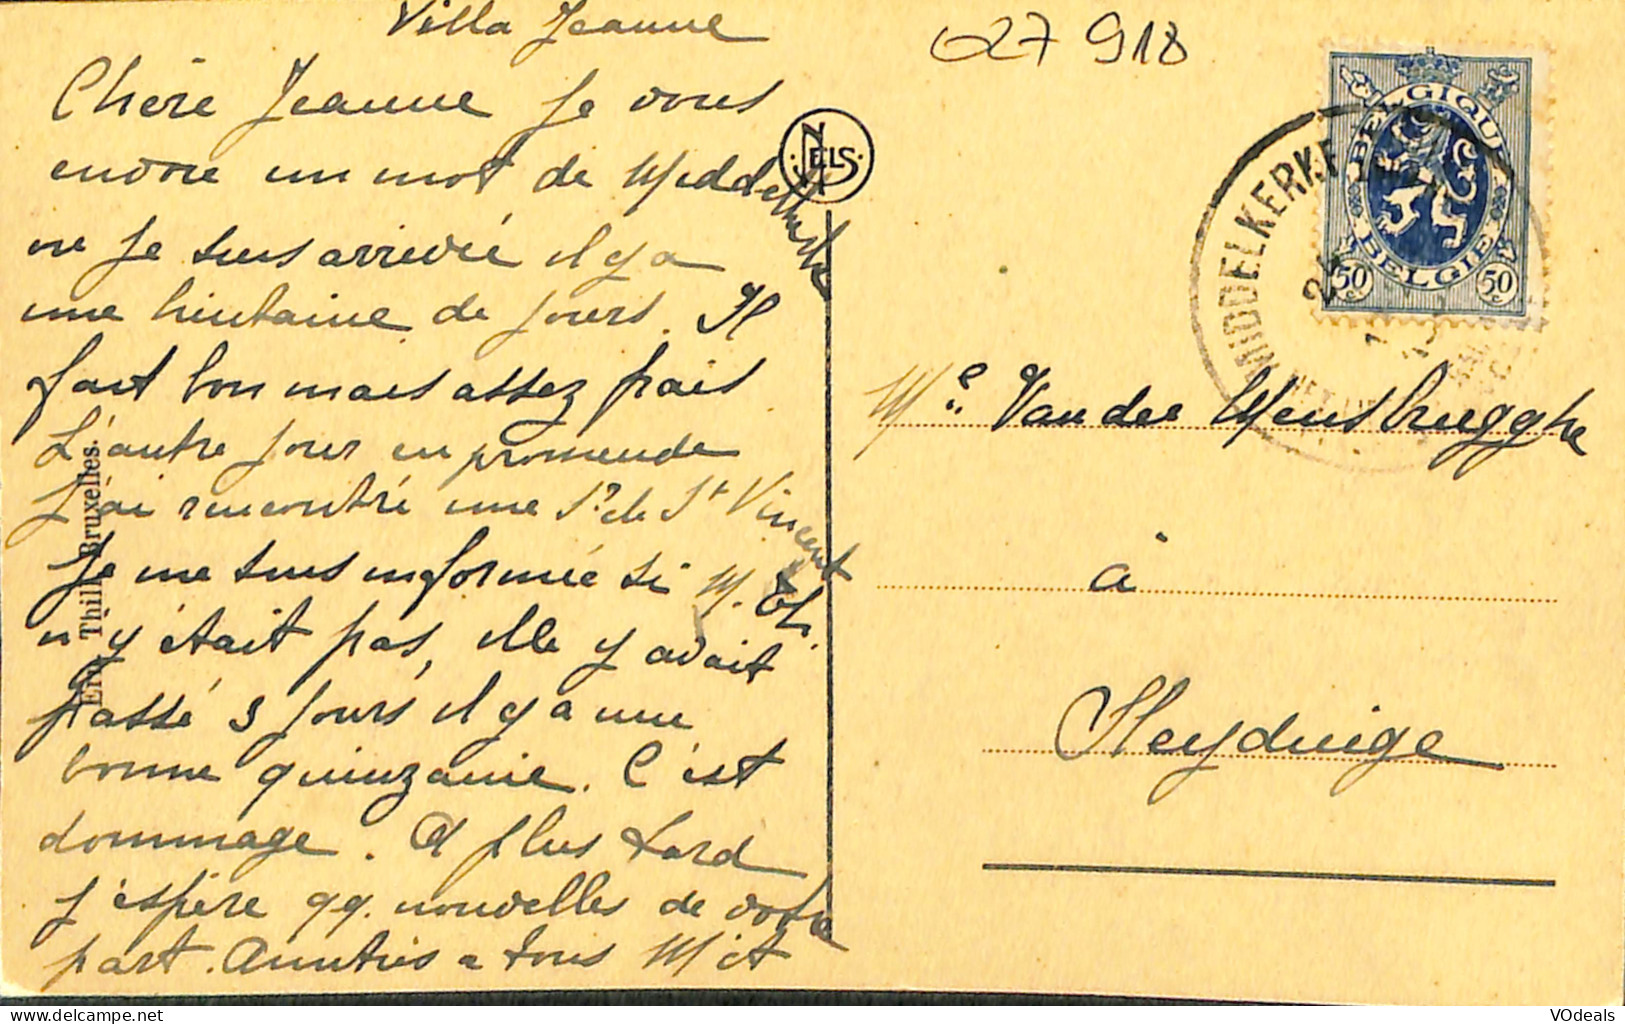 Villa Jeanne
027 918
Chère Jeanne je vous
envoie un mot de Middelkerke
où je suis arrivée il y a
une huitaine de jours. Il
fait bon mais assez frais
L'autre jour en promenade
j'ai rencontré une Sr de St Vincent
Je me suis informée si M. Th.
n'y était pas, elle y avait
passé 3 jours il y a une
bonne quinzaine. C'est
dommage. A plus tard
j'espère qq. nouvelles de votre
part. Amitiés à tous
NELS
Ern. Thill, Bruxelles.
BELGIQUE
BELGIE
50 c
50 c
MIDDELKERKE
Me Van der Mensbrugghe
à
Heyduige
VOdeals